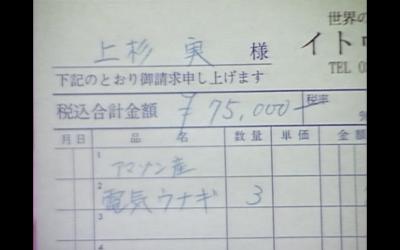 世界の
上杉 実 様
イトウ
TEL 0
下記のとおり御請求申し上げます
税込合計金額 ¥75,000 税率
月日 品名 数量 単価 金額
1 アマゾン産
2 電気ウナギ 3
3